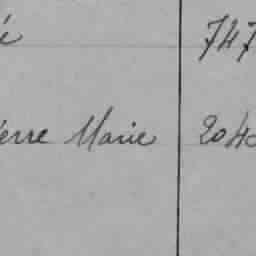 é 747
erre Marie 204